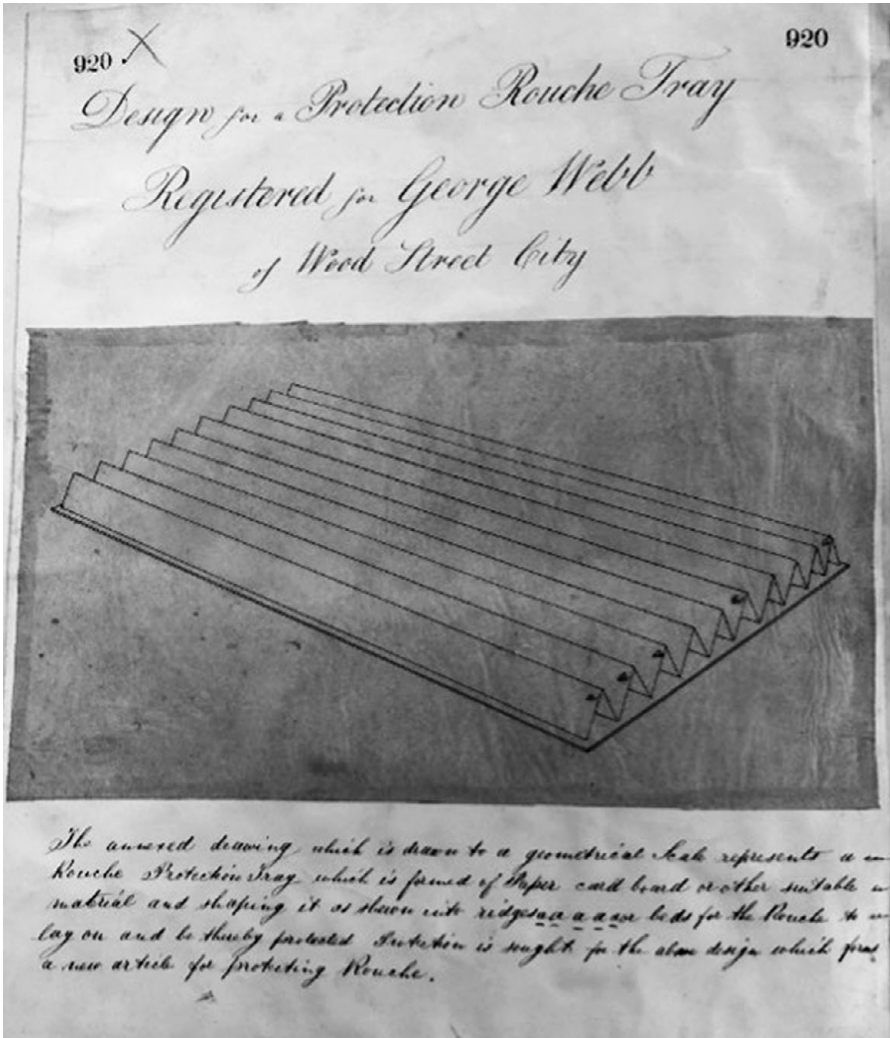 920 X
920
Design for a Protection Rouche Tray
Registered for George Webb
of Wood Street City
a
a
a
a
a
The annexed drawing which is drawn to a geometrical Scale represents a
Rouche Protection Tray which is formed of Paper card board or other suitable
material and shaping it as shewn into ridges a a a a a or beds for the Rouche to
lay on and be thereby protected Protection is sought for the above design which forms
a new article for protecting Rouche.